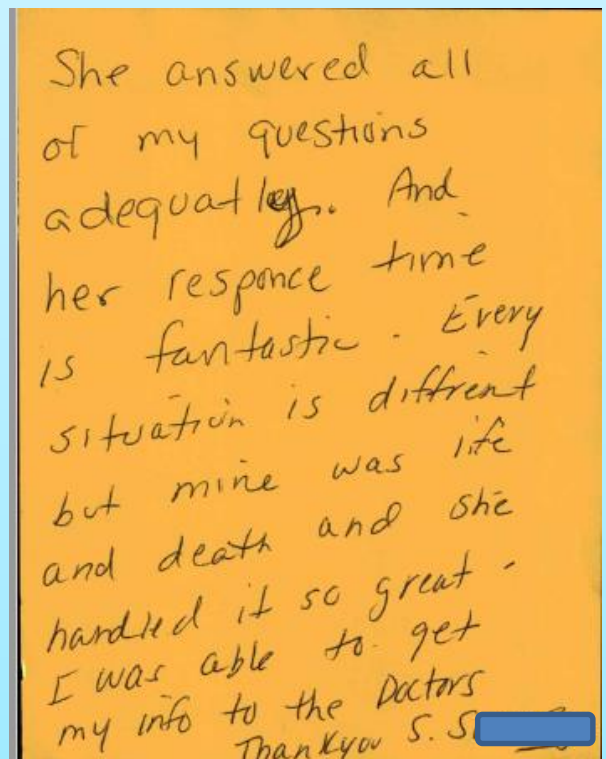 She answered all
of my questions
adequatley. And
her responce time
is fantastic. Every
situation is diffrent
but mine was life
and death and she
handled it so great.
I was able to get
my info to the Doctors
Thankyou S.